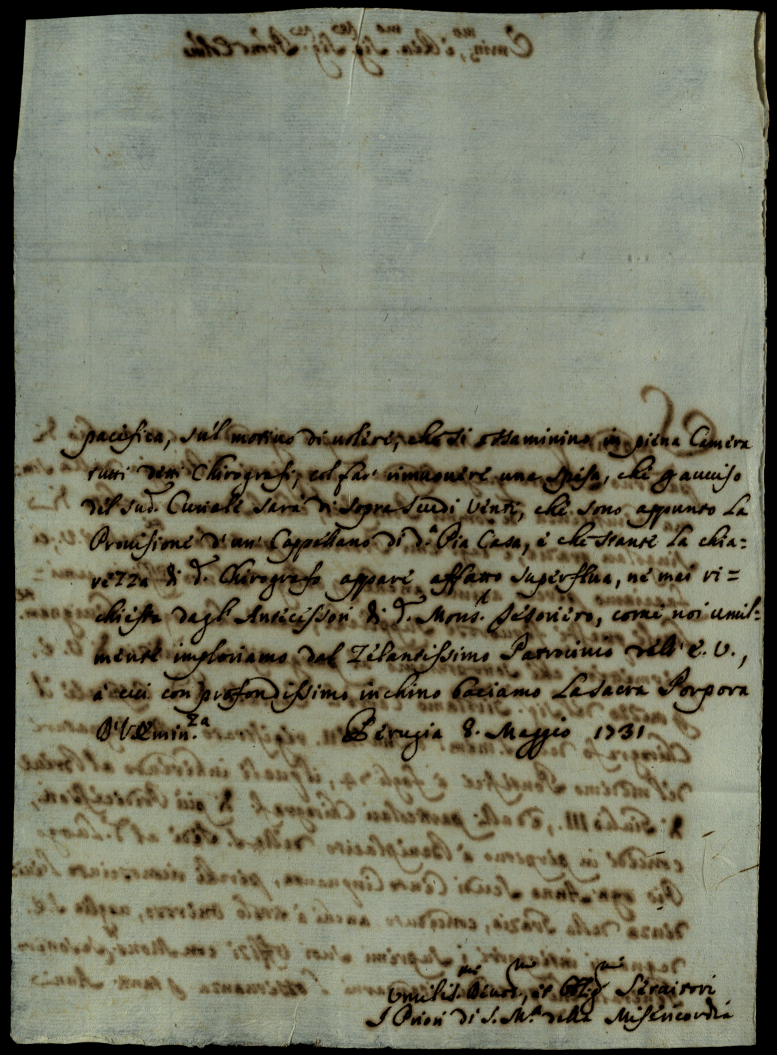 pacifica, sul motivo di volere, che si essaminino in piena Camera
tutti detti Chirografi, col far rimanere una spesa, che p avviso
del sud.º Curiale sarà di sopra scudi venti, che sono appunto La
Provisione d'un Cappellano di d.ª Pia Casa, e che stante La chia=
rezza di d.º Chirografo appare affatto superflua, nè mai ri=
chiesta dagl'Antecessori di d.º Mons.r Tesoriero, come noi umil=
mente imploriamo dal Zelantissimo Patrocinio dell'E. V.,
a cui con profondissimo inchino baciamo La sacra Porpora
D'V. Emin.za Perugia 8. Maggio 1731
Umilis.mi Devot.mi, et Oblig.mi Servitori
I Priori di S. M.ª della Misericordia